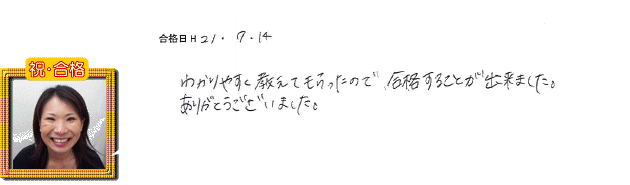 合格日 H 21・7・14
祝・合格
わかりやすく教えてもらったので 合格することが出来ました。
ありがとうございました。